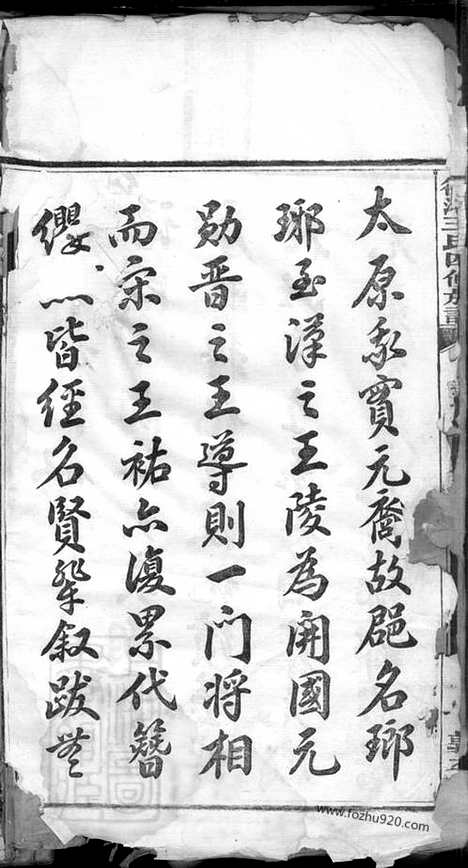 太原永實元裔故郡名瑯
瑯至漢之王陵為開國元
勛晋之王導則一门将相
而宋之王祐亦復累代簪
纓、一皆經名賢輩叙跋
王氏四修族譜
www.fozhu920.com